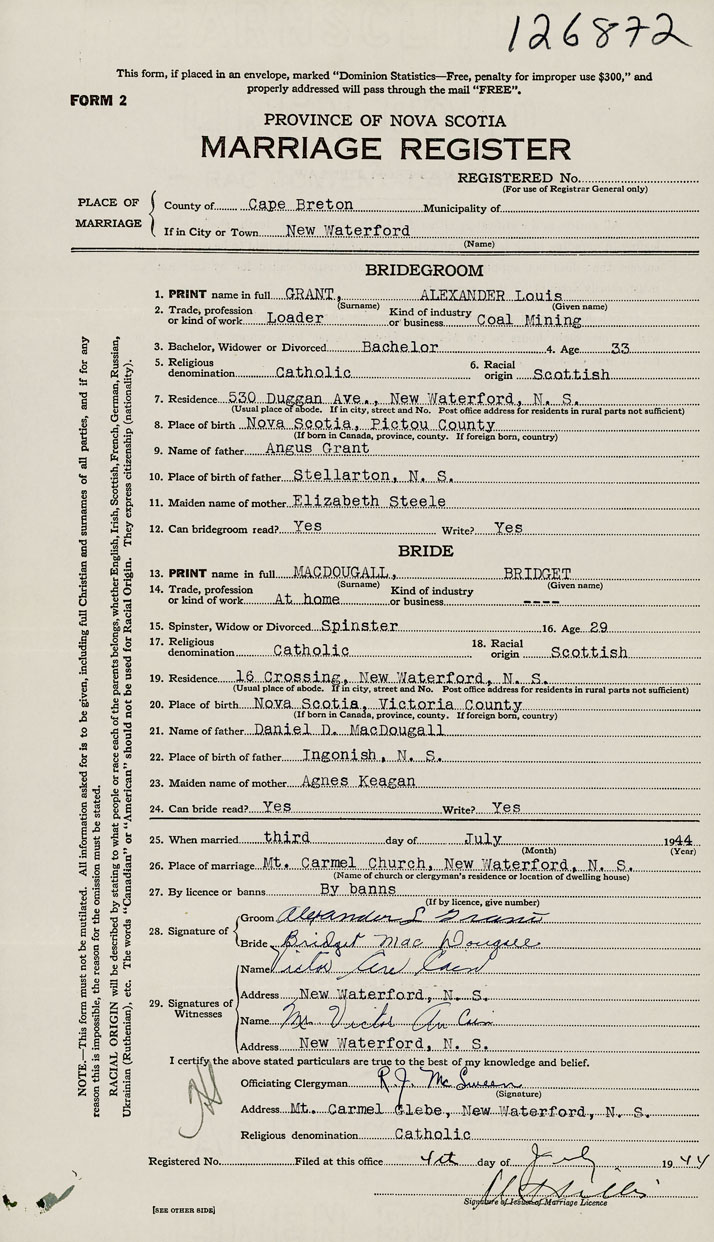 126872
This form, if placed in an envelope, marked "Dominion Statistics—Free, penalty for improper use $300," and
properly addressed will pass through the mail "FREE".
FORM 2
PROVINCE OF NOVA SCOTIA
MARRIAGE REGISTER
REGISTERED No.
(For use of Registrar General only)
PLACE OF MARRIAGE
County of Cape Breton Municipality of
If in City or Town New Waterford
(Name)
BRIDEGROOM
1. PRINT name in full GRANT, ALEXANDER Louis
(Surname) (Given name)
2. Trade, profession or kind of work Loader Kind of industry or business Coal Mining
3. Bachelor, Widower or Divorced Bachelor 4. Age 33
5. Religious denomination Catholic 6. Racial origin Scottish
7. Residence 530 Duggan Ave., New Waterford, N. S.
(Usual place of abode. If in city, street and No. Post office address for residents in rural parts not sufficient)
8. Place of birth Nova Scotia, Pictou County
(If born in Canada, province, county. If foreign born, country)
9. Name of father Angus Grant
10. Place of birth of father Stellarton, N. S.
11. Maiden name of mother Elizabeth Steele
12. Can bridegroom read? Yes Write? Yes
BRIDE
13. PRINT name in full MACDOUGALL, BRIDGET
(Surname) (Given name)
14. Trade, profession or kind of work At home Kind of industry or business ----
15. Spinster, Widow or Divorced Spinster 16. Age 29
17. Religious denomination Catholic 18. Racial origin Scottish
19. Residence 16 Crossing, New Waterford, N. S.
(Usual place of abode. If in city, street and No. Post office address for residents in rural parts not sufficient)
20. Place of birth Nova Scotia, Victoria County
(If born in Canada, province, county. If foreign born, country)
21. Name of father Daniel D. MacDougall
22. Place of birth of father Ingonish, N. S.
23. Maiden name of mother Agnes Keagan
24. Can bride read? Yes Write? Yes
25. When married third day of July 1944
(Month) (Year)
26. Place of marriage Mt. Carmel Church, New Waterford, N. S.
(Name of church or clergyman's residence or location of dwelling house)
27. By licence or banns By banns
(If by licence, give number)
28. Signature of
Groom Alexander L Grant
Bride Bridget Mac Dougall
29. Signatures of Witnesses
Name Victor
Address New Waterford, N. S.
Name Mrs Victor
Address New Waterford, N. S.
I certify the above stated particulars are true to the best of my knowledge and belief.
Officiating Clergyman R. J. McSween
(Signature)
Address Mt. Carmel Glebe, New Waterford, N. S.
Religious denomination Catholic
Registered No. Filed at this office 4th day of July 1944
Signature of Issuer of Marriage Licence
[SEE OTHER SIDE]
NOTE.—This form must not be mutilated. All information asked for is to be given, including full Christian and surnames of all parties, and if for any
reason this is impossible, the reason for the omission must be stated.
RACIAL ORIGIN will be described by stating to what people or race each of the parents belongs, whether English, Irish, Scottish, French, German, Russian,
Ukrainian (Ruthenian), etc. The words "Canadian" or "American" should not be used for Racial Origin. They express citizenship (nationality).